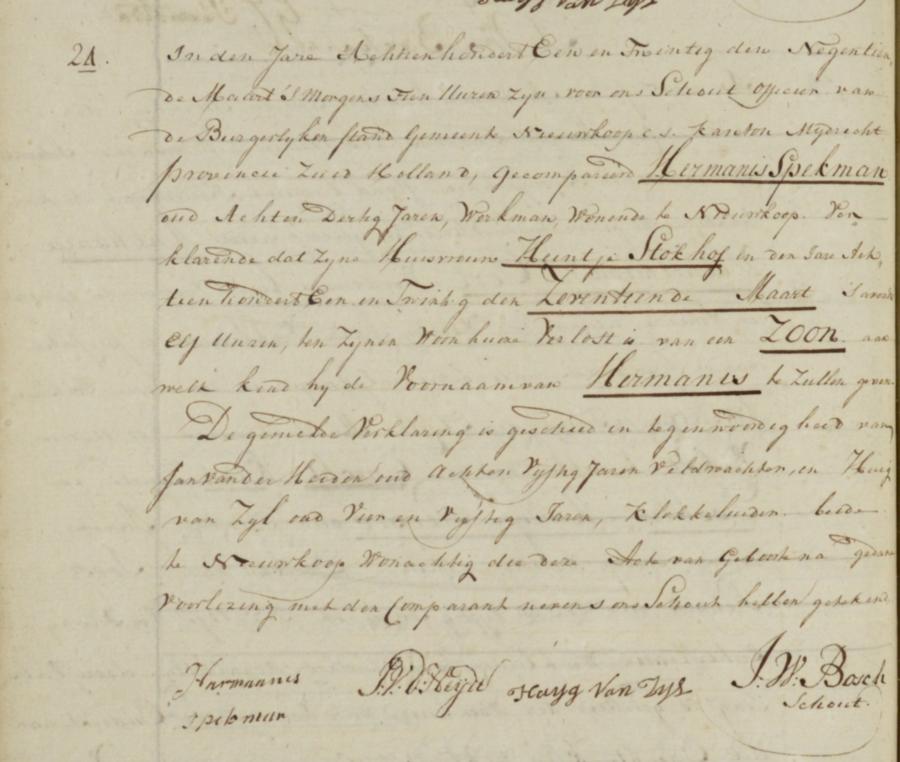 Huijg van Zijl
24.
In den Jare Achttienhondert Een en Twintig den Negentien
de Maart S Morgens Tien Uuren Zyn voor ons Schout Officier van
de Burgerlyken Stand Gemeente Nieuwkoop c.s. Kanton Mydrecht
provincie Zuid Holland, gecompareerd Hermanis Spekman
oud Achten Dertig Jaren, Workman, Wonende te Nieuwkoop. Ver
klarende dat Zyne Huisvrouw Heintje Stokhof in den Jare Ach,
tien hondert Een en Twintig den Zeventiende Maart S avonds
elf Uuren, ten Zynen Woonhuise Verlost is van een Zoon. aan
welk kind hy de Voornaam van Hermanis te Zullen geven
De gemelde Verklaring is geschied in tegenwoordigheid van
Jan van der Heiden oud Achten Vyftig Jaren Veldwachter, en Huig
van Zyl oud Vier en Vyftig Jaren, Klokkeluider. beide
te Nieuwkoop Wonachtig die deze Acte van Geboorte na gedane
Voorlezing met den Comparant nevens ons Schout hebben getekend
Harmaanis
Spekman
J.V.D. Heyde
Huijg Van Zijl
J: W: Bosch
Schout.